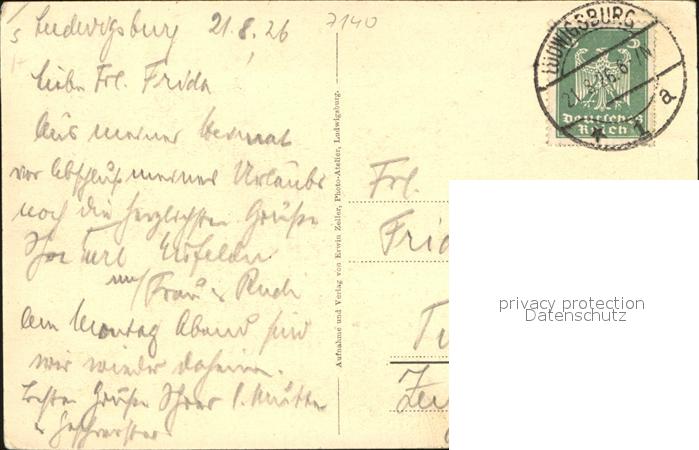 Ludwigsburg 21.8.26
7140
Liebe Frl. Frida
Aus meiner Heimat
vor Abschluß meines Urlaubs
noch die herzlichsten Grüße
Ihr Karl
m/ Frau u.
Am Montag Abend sind
wir wieder daheim.
Besten Gruß Ihrer l. Mutter
u. Geschwister
Aufnahme und Verlag von Erwin Zeller, Photo-Atelier, Ludwigsburg.
LUDWIGSBURG
21.8.26.6-7N
* 1 a
Deutsches
Reich
Frl.
Frid
privacy protection
Datenschutz